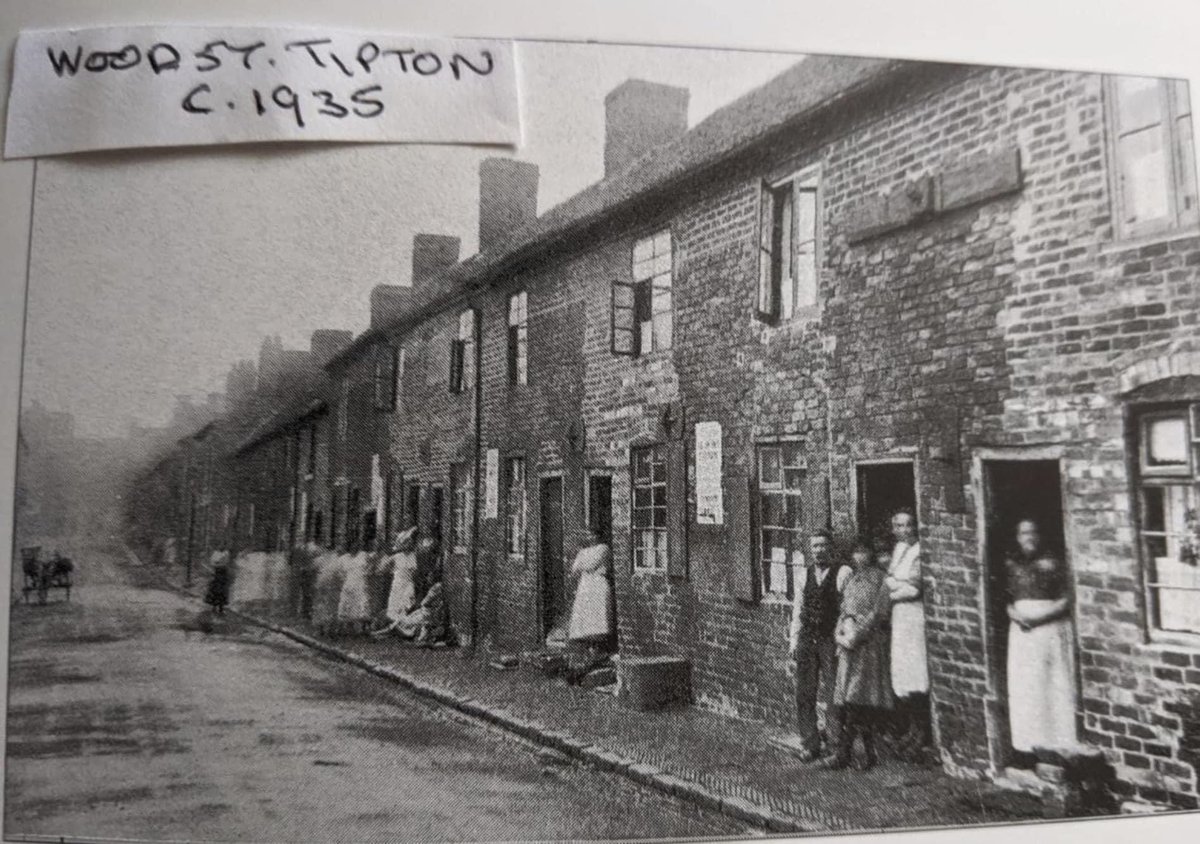 WOOD ST. TIPTON
C. 1935